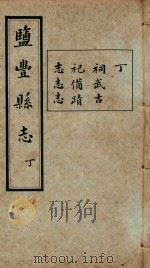 丁
祠祀志
武備志
古蹟志
鹽豐縣志
丁